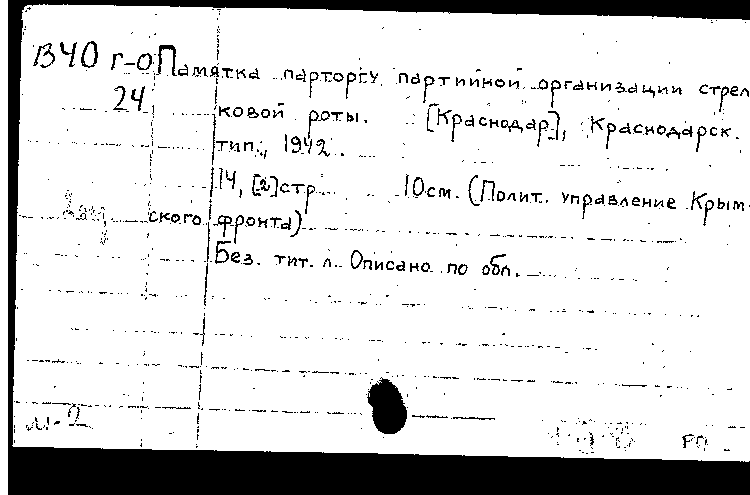 ВЧО г-о Памятка парторгу партийной организации стрел
24 ковой роты. [Краснодар], Краснодарск.
тип., 1942.
14, [2] стр 10см. (Полит. управление Крым-
ского фронта)
Без. тит. л. Описано по обл.
м-2 РП